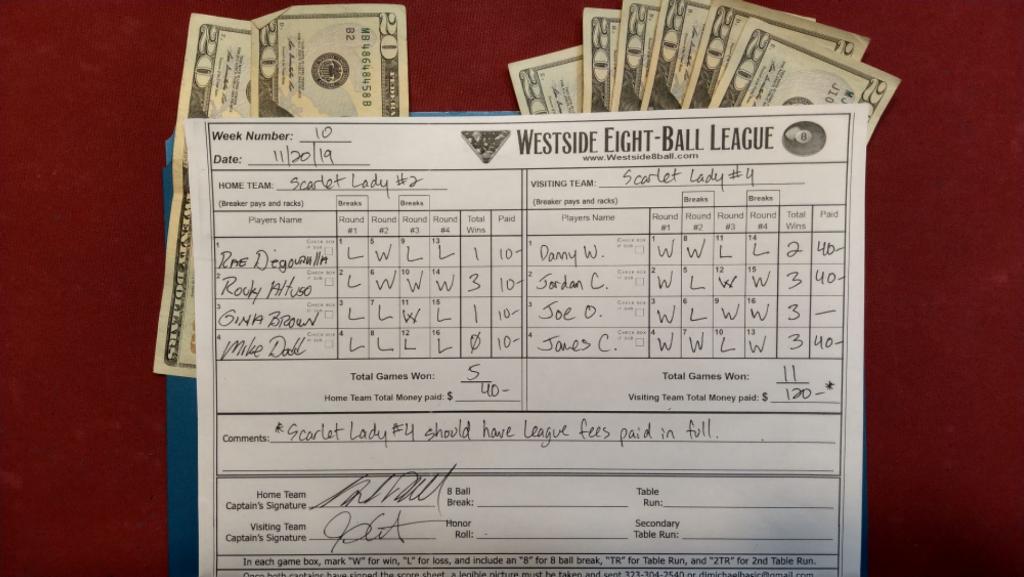 20 MB48648458B 20
B2
20 20 20 20 20 20
Week Number: 10
Date: 11/20/19
WESTSIDE EIGHT-BALL LEAGUE 8
www.Westside8ball.com
HOME TEAM: Scarlet Lady #2 VISITING TEAM: Scarlet Lady #4
(Breaker pays and racks) Breaks Breaks (Breaker pays and racks) Breaks Breaks
Players Name Round #1 Round #2 Round #3 Round #4 Total Wins Paid Players Name Round #1 Round #2 Round #3 Round #4 Total Wins Paid
1 CHECK BOX IF SUB 1 L 5 W 9 L 13 L 1 10- 1 Danny W. CHECK BOX IF SUB 1 W 8 W 11 L 14 L 2 40-
2 Rocky CHECK BOX IF SUB 2 L 6 W 10 W 14 W 3 10- 2 Jordan C. CHECK BOX IF SUB 2 W 5 L 12 W 15 W 3 40-
3 GINA BROWN CHECK BOX IF SUB 3 L 7 L 11 W 15 L 1 10- 3 Joe O. CHECK BOX IF SUB 3 W 6 L 9 W 16 W 3 —
4 Mike CHECK BOX IF SUB 4 L 8 L 12 L 16 L Ø 10- 4 James C. CHECK BOX IF SUB 4 W 7 W 10 L 13 W 3 40-
Total Games Won: 5 Total Games Won: 11
Home Team Total Money paid: $ 40- Visiting Team Total Money paid: $ 120-*
Comments: *Scarlet Lady #4 should have League fees paid in full.
Home Team Captain's Signature 8 Ball Break: Table Run:
Visiting Team Captain's Signature Honor Roll: Secondary Table Run:
In each game box, mark "W" for win, "L" for loss, and include an "8" for 8 ball break, "TR" for Table Run, and "2TR" for 2nd Table Run.
Once both captains have signed the score sheet, a legible picture must be taken and sent 323-304-2540 or djmichaelbasic@gmail.com